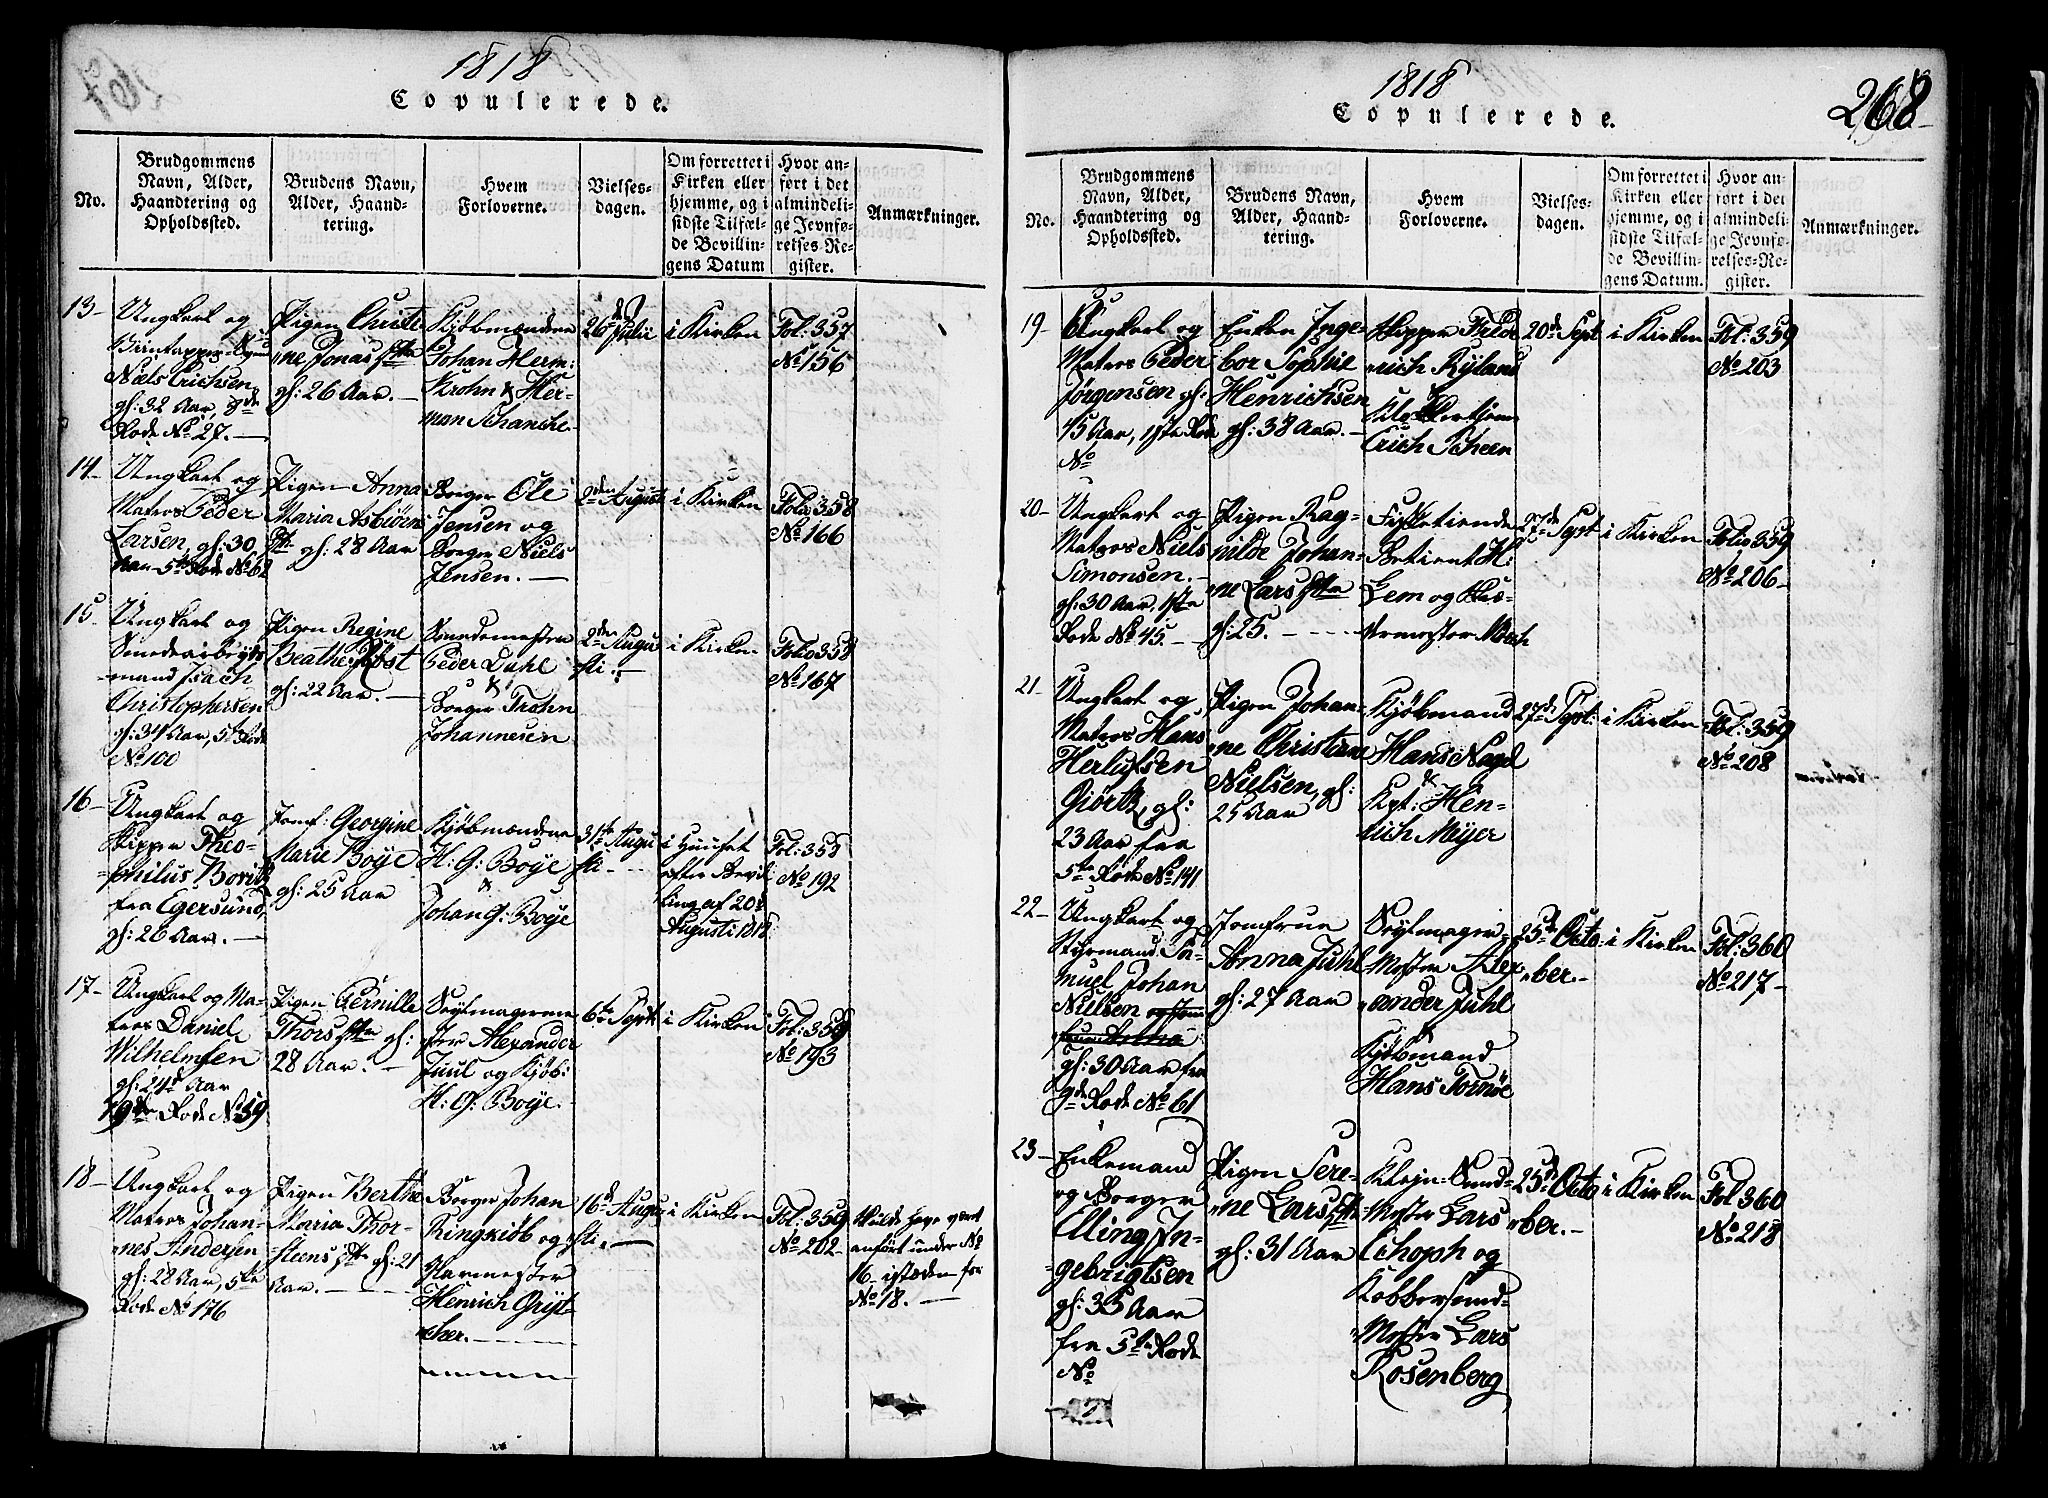 1818
Copulerede.
No.
Brudgommens
Navn, Alder,
Haandtering og
Opholdssted.
Brudens Navn,
Alder, Haand-
tering.
Hvem
Forloverne.
Vielses-
dagen.
Om forrettet i
Kirken eller
hjemme, og i
sidste Tilfæl-
de Bevillin-
gens Datum
Hvor an-
ført i det
almindeli-
ge Jevnfø-
relses-Re-
gister.
Anmærkninger.
13-
Ungkarl og
Niels Erichsen,
gl: 32 Aar, 8de
Rode No 27.
Pigen Christi-
ne Jonas
gl: 26 Aar.
Kjøbmændene
Johan Herm:
Krohn & Her-
man Schanche
26de Julii
i Kirken
Fol: 357
No 156
14-
Ungkarl og
Matros Peder
Larsen, gl: 30
Aar 5te Rode No 62
Pigen Anna
Maria Asbiørns
gl: 28 Aar
Borger Ole
Jensen og
Borger Niels
Jensen.
2den Augusti
i Kirken
Folio 358
No 166
15
Ungkarl og
Smedearbeyds
mand Isach
Christophersen
gl: 34 Aar, 5te Rode
No 100
Pigen Regine
Beathe Røst
gl: 22 Aar.
Smedemester
Peder Dahl
&
Borger Trohn
Johannesen
2den Augu
sti.
i Kirken
Folio 358
No 167
16-
Ungkarl og
Skipper Theo-
philus Boritz
fra Egersund,
gl: 26 Aar.
Jomf: Georgine
Marie Boye
gl: 25 Aar
Kjøbmændene
H: G: Boye
&
Johan G: Boye
31te Augu
sti
i Huuset
efter Bevil
ling af 20de
Augusti 1818
Fol: 358
No 192
17-
Ungkarl og Ma-
tros Daniel
Wilhelmsen
gl: 24 Aar
9de Rode No 59
Pigen Pernille
Thors gl:
28 Aar.
Alexander
Juul og Kjøb:
H: G: Boye.
6te Sept
i Kirken
Fol: 359
No 193
18-
Ungkarl og
Matros Johan-
nes Andersen
gl: 28 Aar, 5te
Rode No 176
Pigen Berthe
Maria Thor-
steens gl: 21
Aar.
Borger Johan
Ringkiøb og
Havnemester
Henrich
16de Augu
sti.
i Kirken
Fol: 359
No 202
Skulde have været
anført under No
16 istæden for
No 18.
1818
Copulerede.
268
No.
Brudgommens
Navn, Alder,
Haandtering og
Opholdssted.
Brudens Navn,
Alder, Haand-
tering.
Hvem
Forloverne.
Vielses-
dagen.
Om forrettet i
Kirken eller
hjemme, og i
sidste Tilfæl-
de Bevillin-
gens Datum.
Hvor an-
ført i det
almindeli-
ge Jevnfø-
relses-Re-
gister.
Anmærkninger.
19-
Ungkarl og
Matros Peder
Jørgensen gl:
45 Aar, 1ste Rode
No
Enken Inge-
bor Sophie
Henrichsen
gl: 38 Aar.
Skipper Fride
rich Ryland
&
Erich Scheen
20de Sept
i Kirken
Fol: 359
No 203
20-
Ungkarl og
Matros Niels
Simonsen.
gl: 30 Aar, 1ste
Rode No 45.
Pigen Rag-
nilde Johan-
ne Lars
gl: 25.
Fisketiende
Betient H:
Lem og
27de Sept
i Kirken
Folio 359
No 206
21-
Ungkarl og
Matros Hans
Herlufsen
Giørtz, gl:
23 Aar fra
5te Rode No 141
Pigen Johan-
ne Christine
Nielsen, gl:
25 Aar
Kjøbmand
Hans Nagel
&
Kpt: Hen-
rich Meyer
27de Sept:
i Kirken
Fol: 359
No 208
22-
Ungkarl og
Styrmand Sa-
muel Johan
Nielsen
gl: 30 Aar fra
9de Rode No 61
Jomfrue
Anna Juhl
gl: 27 Aar
Mester Alex
ander Juhl
&
Kjøbmand
Hans Tornøe
25de Octo
ber.
i Kirken
Fol: 360
No 217
23-
Enkemand
og Borger
Elling In-
gebrigtsen
gl: 35 Aar
fra 5te Rode
No
Pigen Sere-
ne Lars
gl: 31 Aar
Klejn-Smed-
Mester Lars
og
Kobbersmed-
Mester Lars
Rosenberg
25de Octo
ber.
i Kirken
Fol 360
No 218